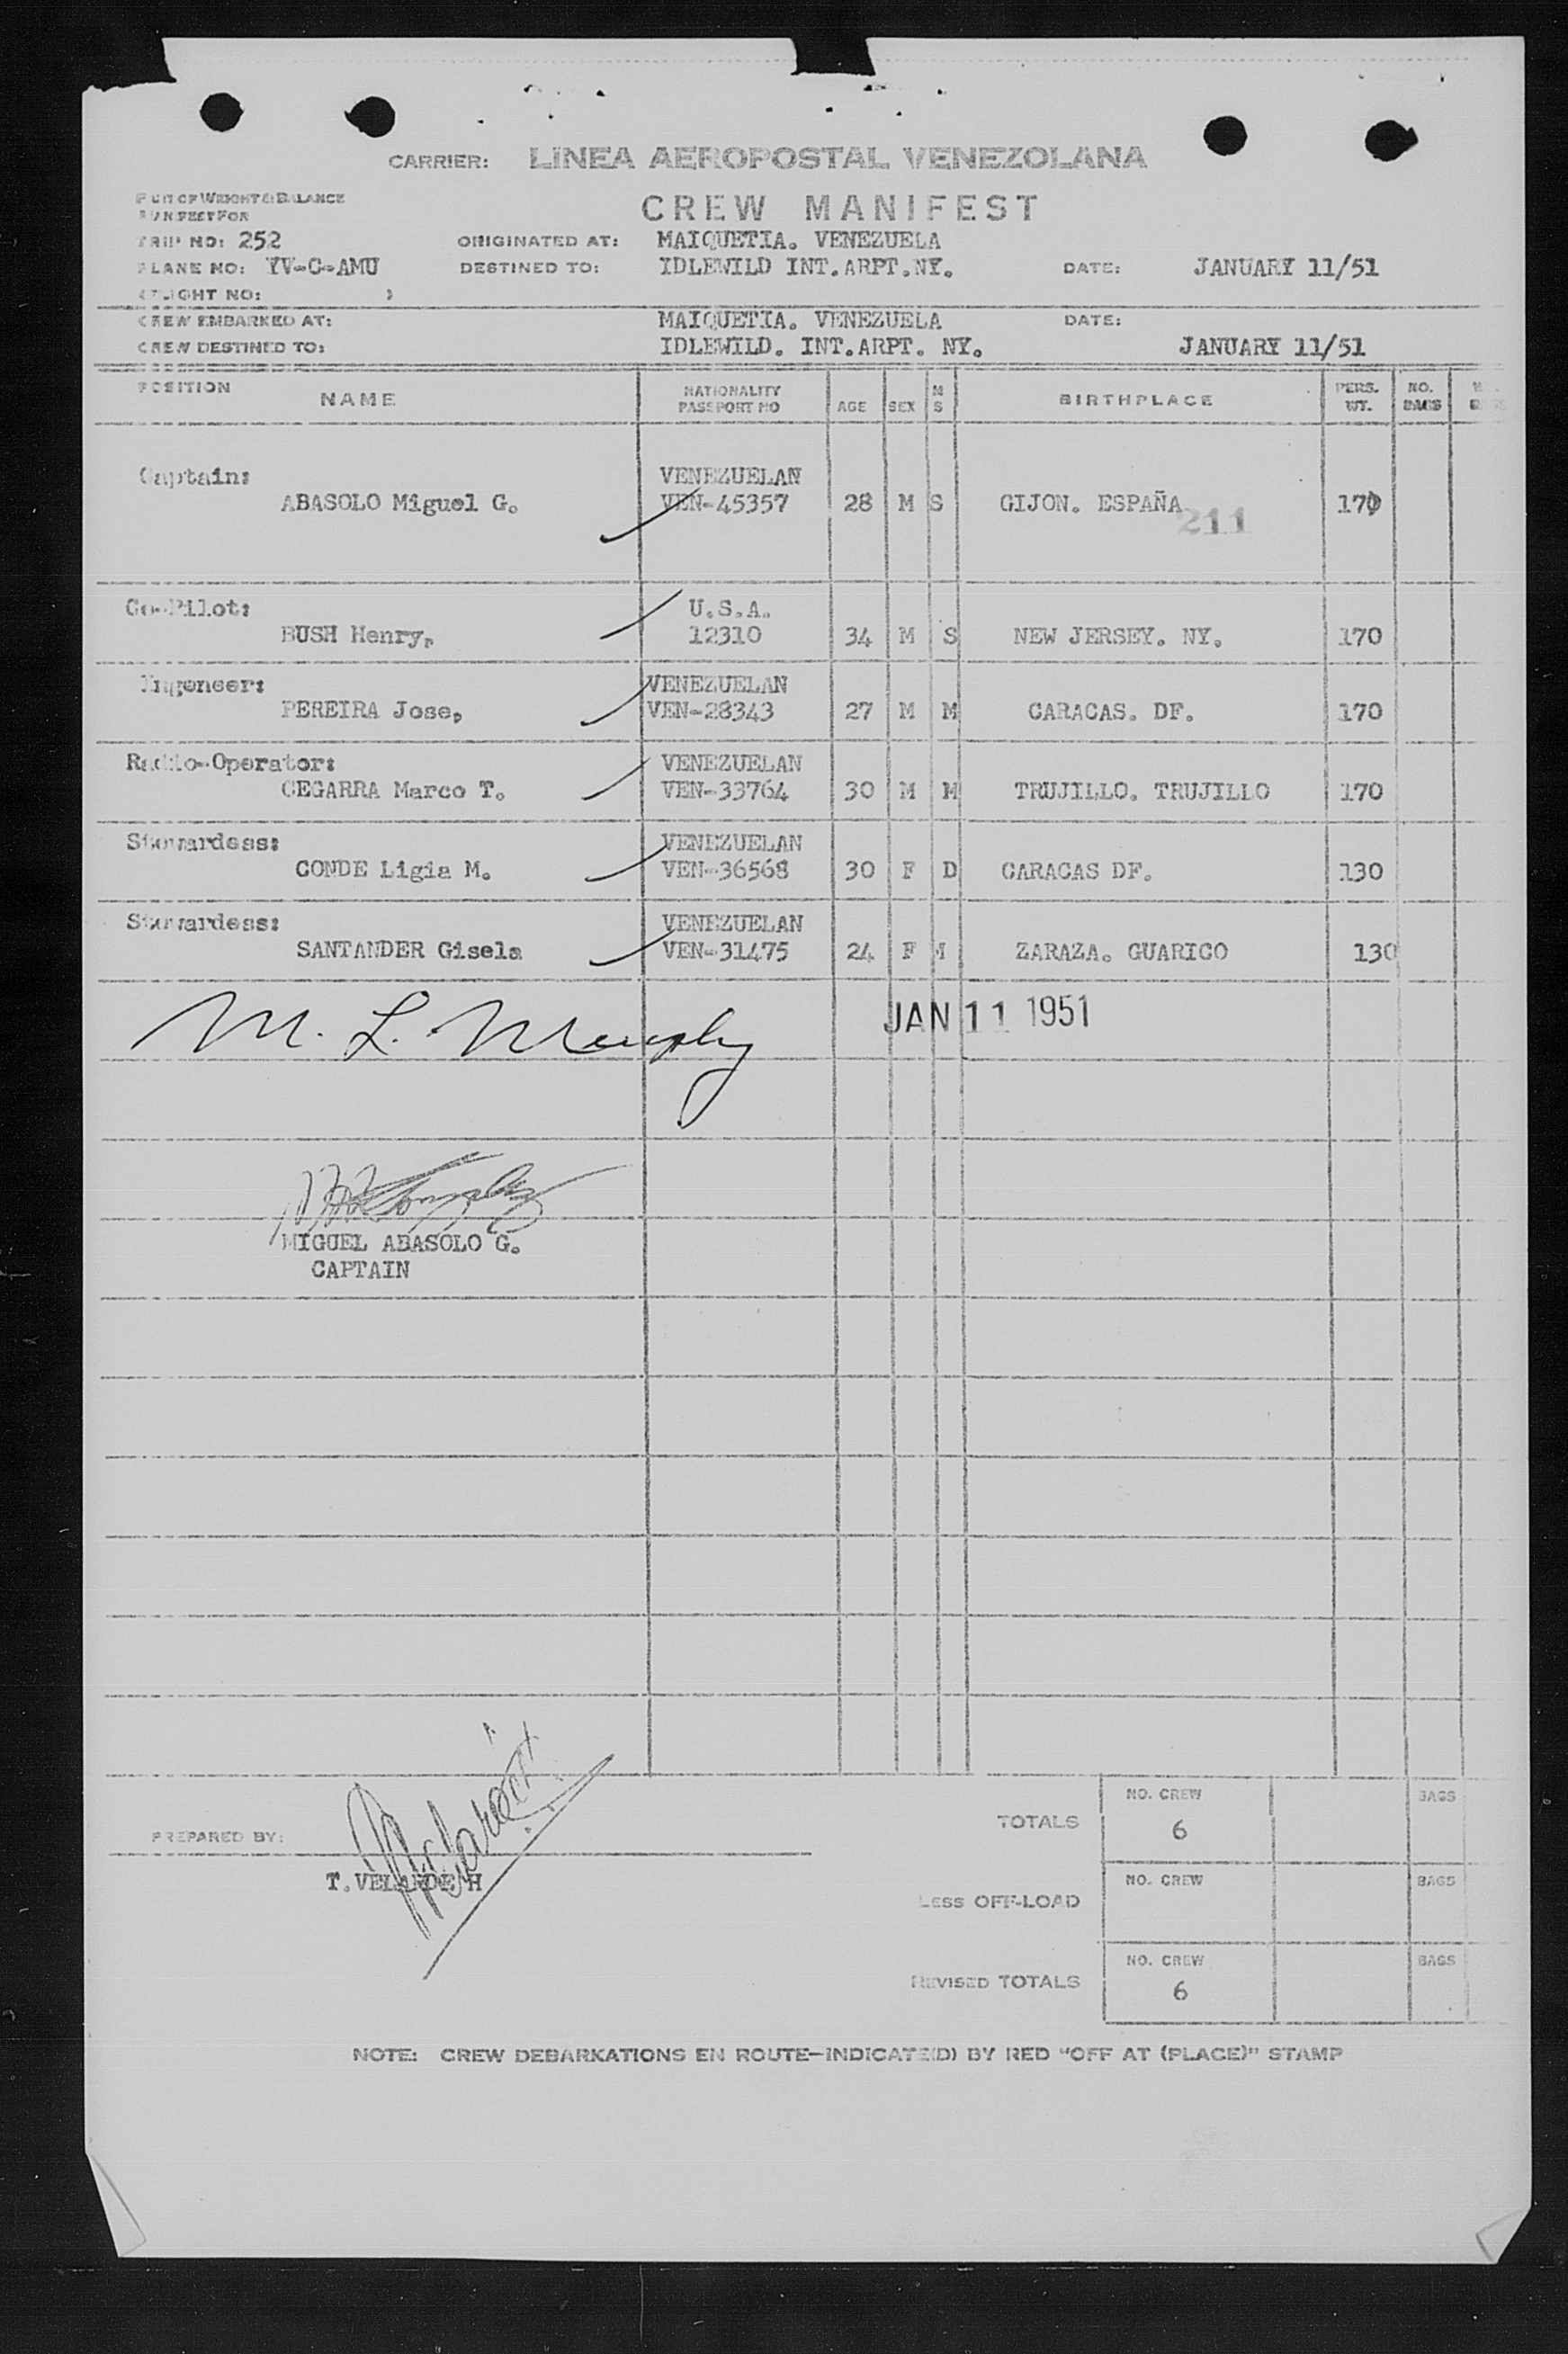 CARRIER: LINEA AEROPOSTAL VENEZOLANA
CREW MANIFEST
PART OF WEIGHT & BALANCE
MANIFEST FOR
TRIP NO: 252 ORIGINATED AT: MAIQUETIA. VENEZUELA
PLANE NO: YV-C-AMU DESTINED TO: IDLEWILD INT.ARPT.NY. DATE: JANUARY 11/51
(FLIGHT NO: )
CREW EMBARKED AT: MAIQUETIA. VENEZUELA DATE:
CREW DESTINED TO: IDLEWILD. INT.ARPT. NY. JANUARY 11/51
POSITION NAME NATIONALITY PASSPORT NO AGE SEX M S BIRTHPLACE PERS. WT. NO. BAGS
Captain: VENEZUELAN
ABASOLO Miguel G. VEN-45357 28 M S GIJON. ESPAÑA 170
211
Co-Pilot: U.S.A.
BUSH Henry, 12310 34 M S NEW JERSEY. NY. 170
Ingeneer: VENEZUELAN
PEREIRA Jose, VEN-28343 27 M M CARACAS. DF. 170
Radio-Operator: VENEZUELAN
CEGARRA Marco T. VEN-33764 30 M M TRUJILLO. TRUJILLO 170
Stewardess: VENEZUELAN
CONDE Ligia M. VEN-36568 30 F D CARACAS DF. 130
Stewardess: VENEZUELAN
SANTANDER Gisela VEN-31475 24 F M ZARAZA. GUARICO 130
M. L. Murphy JAN 11 1951
MIGUEL ABASOLO G.
CAPTAIN
NO. CREW BAGS
TOTALS 6
PREPARED BY:
T. VELARDE H
NO. CREW BAGS
LESS OFF-LOAD
NO. CREW BAGS
REVISED TOTALS 6
NOTE: CREW DEBARKATIONS EN ROUTE-INDICATE(D) BY RED "OFF AT (PLACE)" STAMP